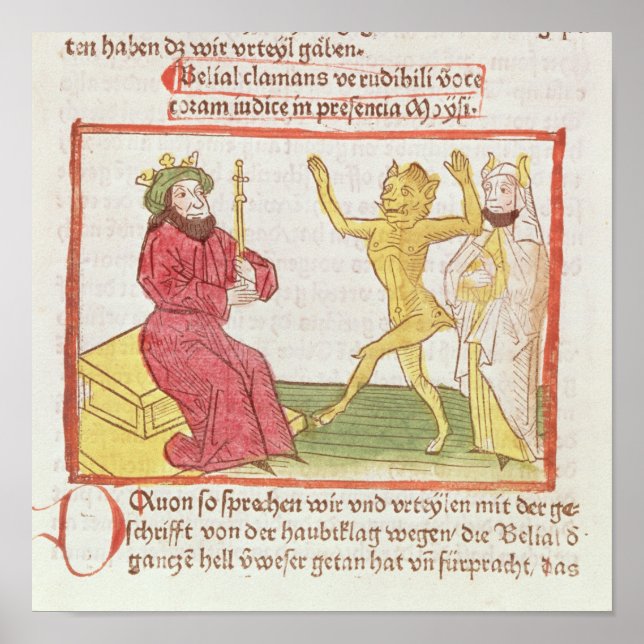 ten haben dz wir vrteÿl gäben.
Belial clamans ve rudibili voce
coram iudice in presencia Moÿsi.
Dauon so sprechen wir vnd vrteÿlen mit der ge⸗
schrifft von der haubtklag wegen/ die Belial d
gancze hell v̈weser getan hat vn̄ fürpracht/ das